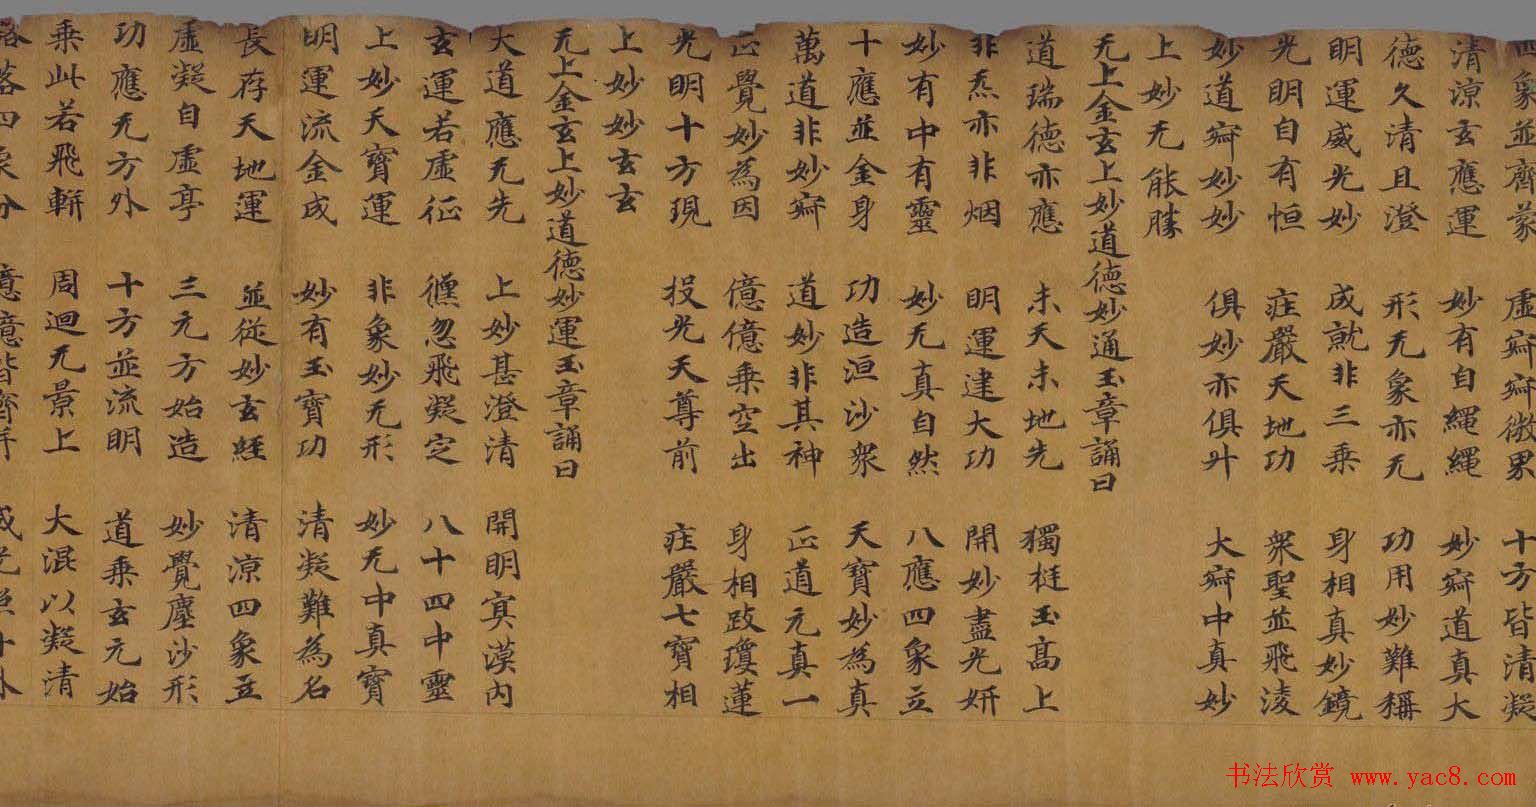 四象並齊蒙 虛寂寂微界 十方皆清凝
清涼玄應運 妙有自繩繩 妙寂道真大
德久清且澄 形无象亦无 功用妙難稱
明運威光妙 成就非三乗 身相真妙鏡
光明自有恒 庄嚴天地功 衆聖並飛淩
妙道寂妙妙 俱妙亦俱升 大寂中真妙
上妙无能勝
无上金玄上妙道德妙通玉章誦曰
道瑞德亦應 未天未地先 獨挺玉高上
非炁亦非烟 明運建大功 開妙盡光妍
妙有中有靈 妙无真自然 八應四象立
十應並金身 功造洹沙衆 天寶妙為真
萬道非妙寂 道妙非其神 正道元真一
正覺妙為因 億億乗空出 身相跂瓊蓮
光明十方現 投光天尊前 庄嚴七寶相
上妙妙玄玄
无上金玄上妙道德妙運玉章誦曰
大道應无先 上妙甚澄清 開明寘漠内
玄運若虛征 儵忽飛凝定 八十四中靈
上妙天寶運 非象妙无形 妙无中真寶
明運流金成 妙有玉寶功 清凝難為名
長存天地運 並從妙玄經 清涼四象立
虛凝自虛亭 三元方始造 妙覺塵沙形
功應无方外 十方並流明 道乗玄元始
乗此若飛軿 周迴无景上 大混以凝清
落四象分 億億皆齊
书法欣赏 www.yac8.com